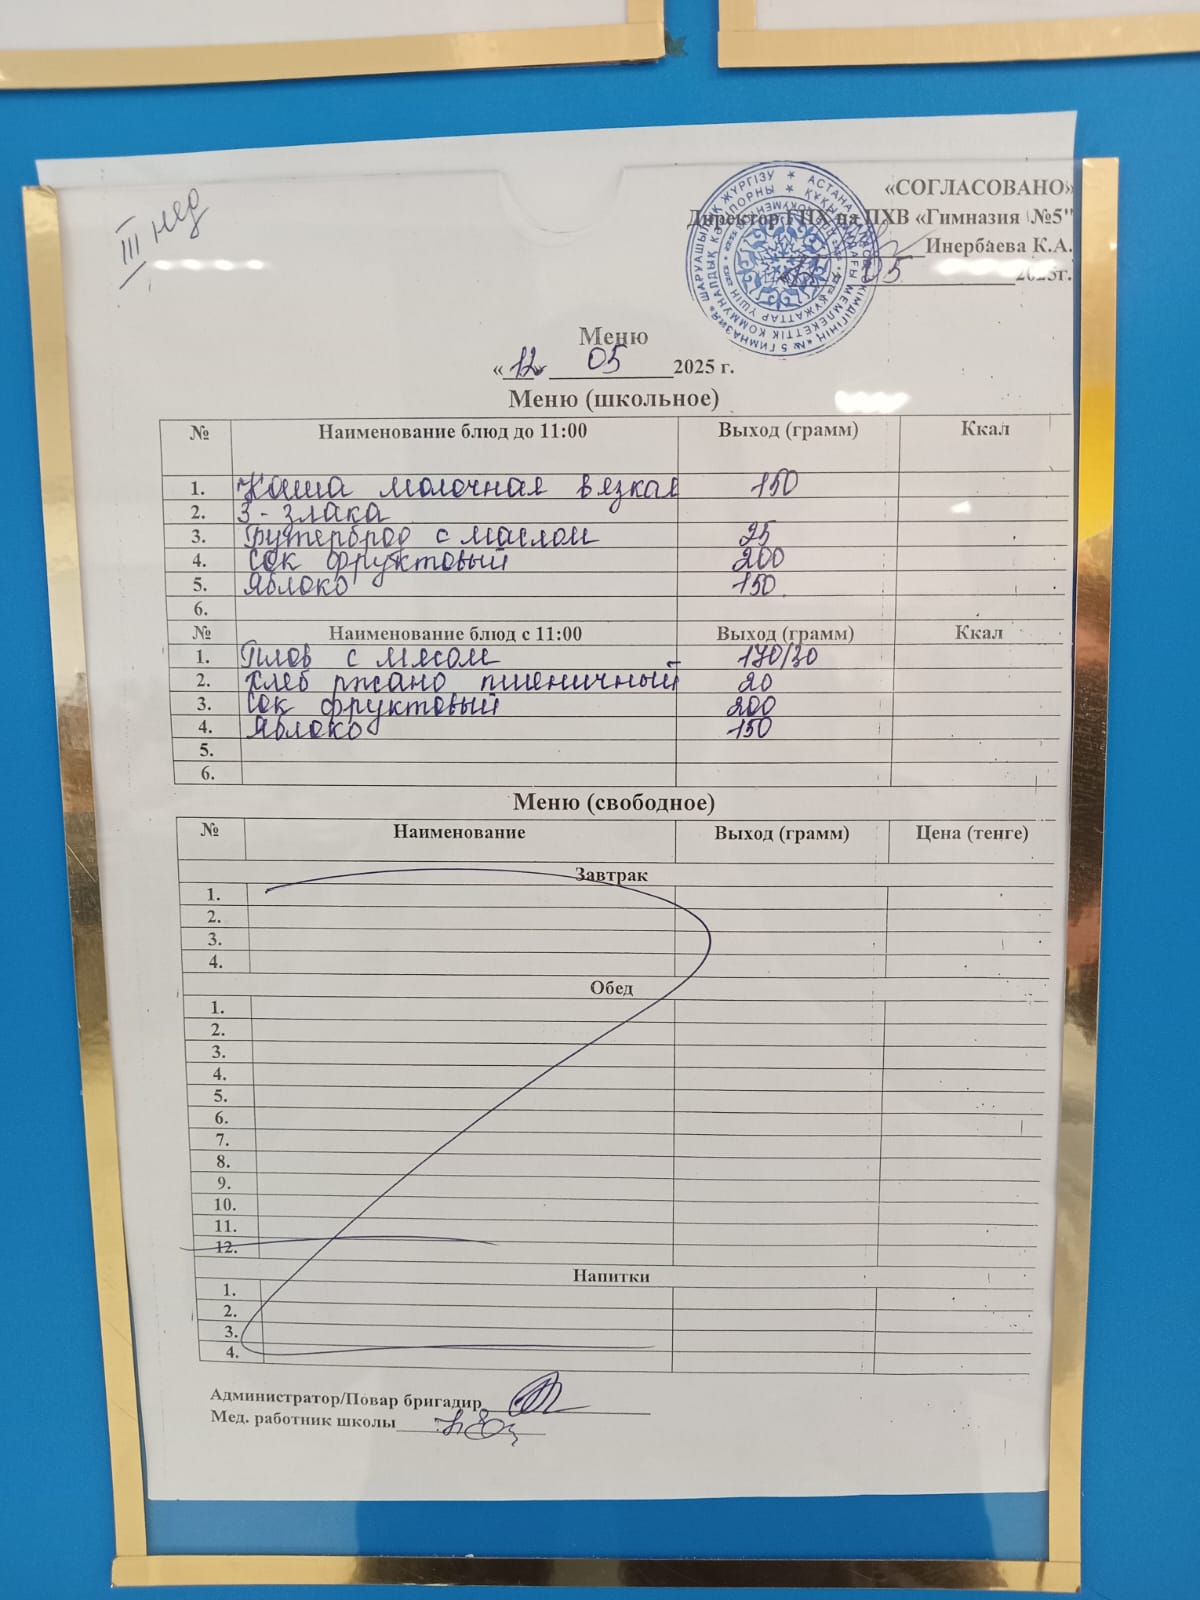 III нед
«СОГЛАСОВАНО»
Директор ГПХ на ПХВ «Гимназия №5"
Инербаева К.А.
05 2025г.
Меню
«12» 05 2025 г.
Меню (школьное)
№ Наименование блюд до 11:00 Выход (грамм) Ккал
1. Каша молочная вязкая 150
2. 3 - злака
3. Бутерброд с маслом 25
4. Сок фруктовый 200
5. Яблоко 150
6.
№ Наименование блюд с 11:00 Выход (грамм) Ккал
1. Плов с мясом 170/30
2. Хлеб ржано пшеничный 20
3. Сок фруктовый 200
4. Яблоко 150
5.
6.
Меню (свободное)
№ Наименование Выход (грамм) Цена (тенге)
Завтрак
1.
2.
3.
4.
Обед
1.
2.
3.
4.
5.
6.
7.
8.
9.
10.
11.
12.
Напитки
1.
2.
3.
4.
Администратор/Повар бригадир
Мед. работник школы